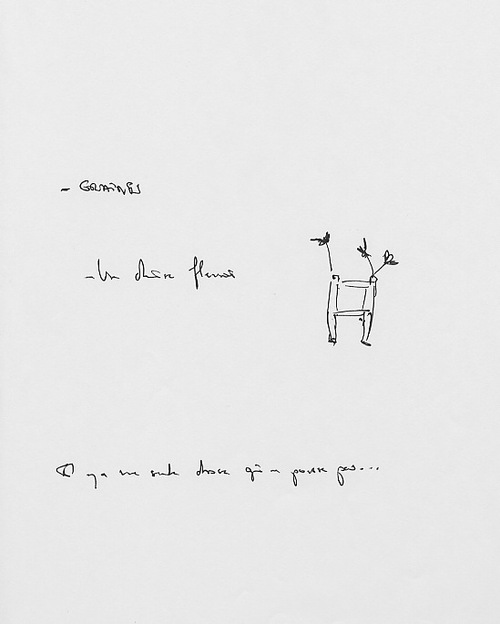 - GRAINES
- Un chaise fleurie
Il y a une seule chose qui ne pousse pas...